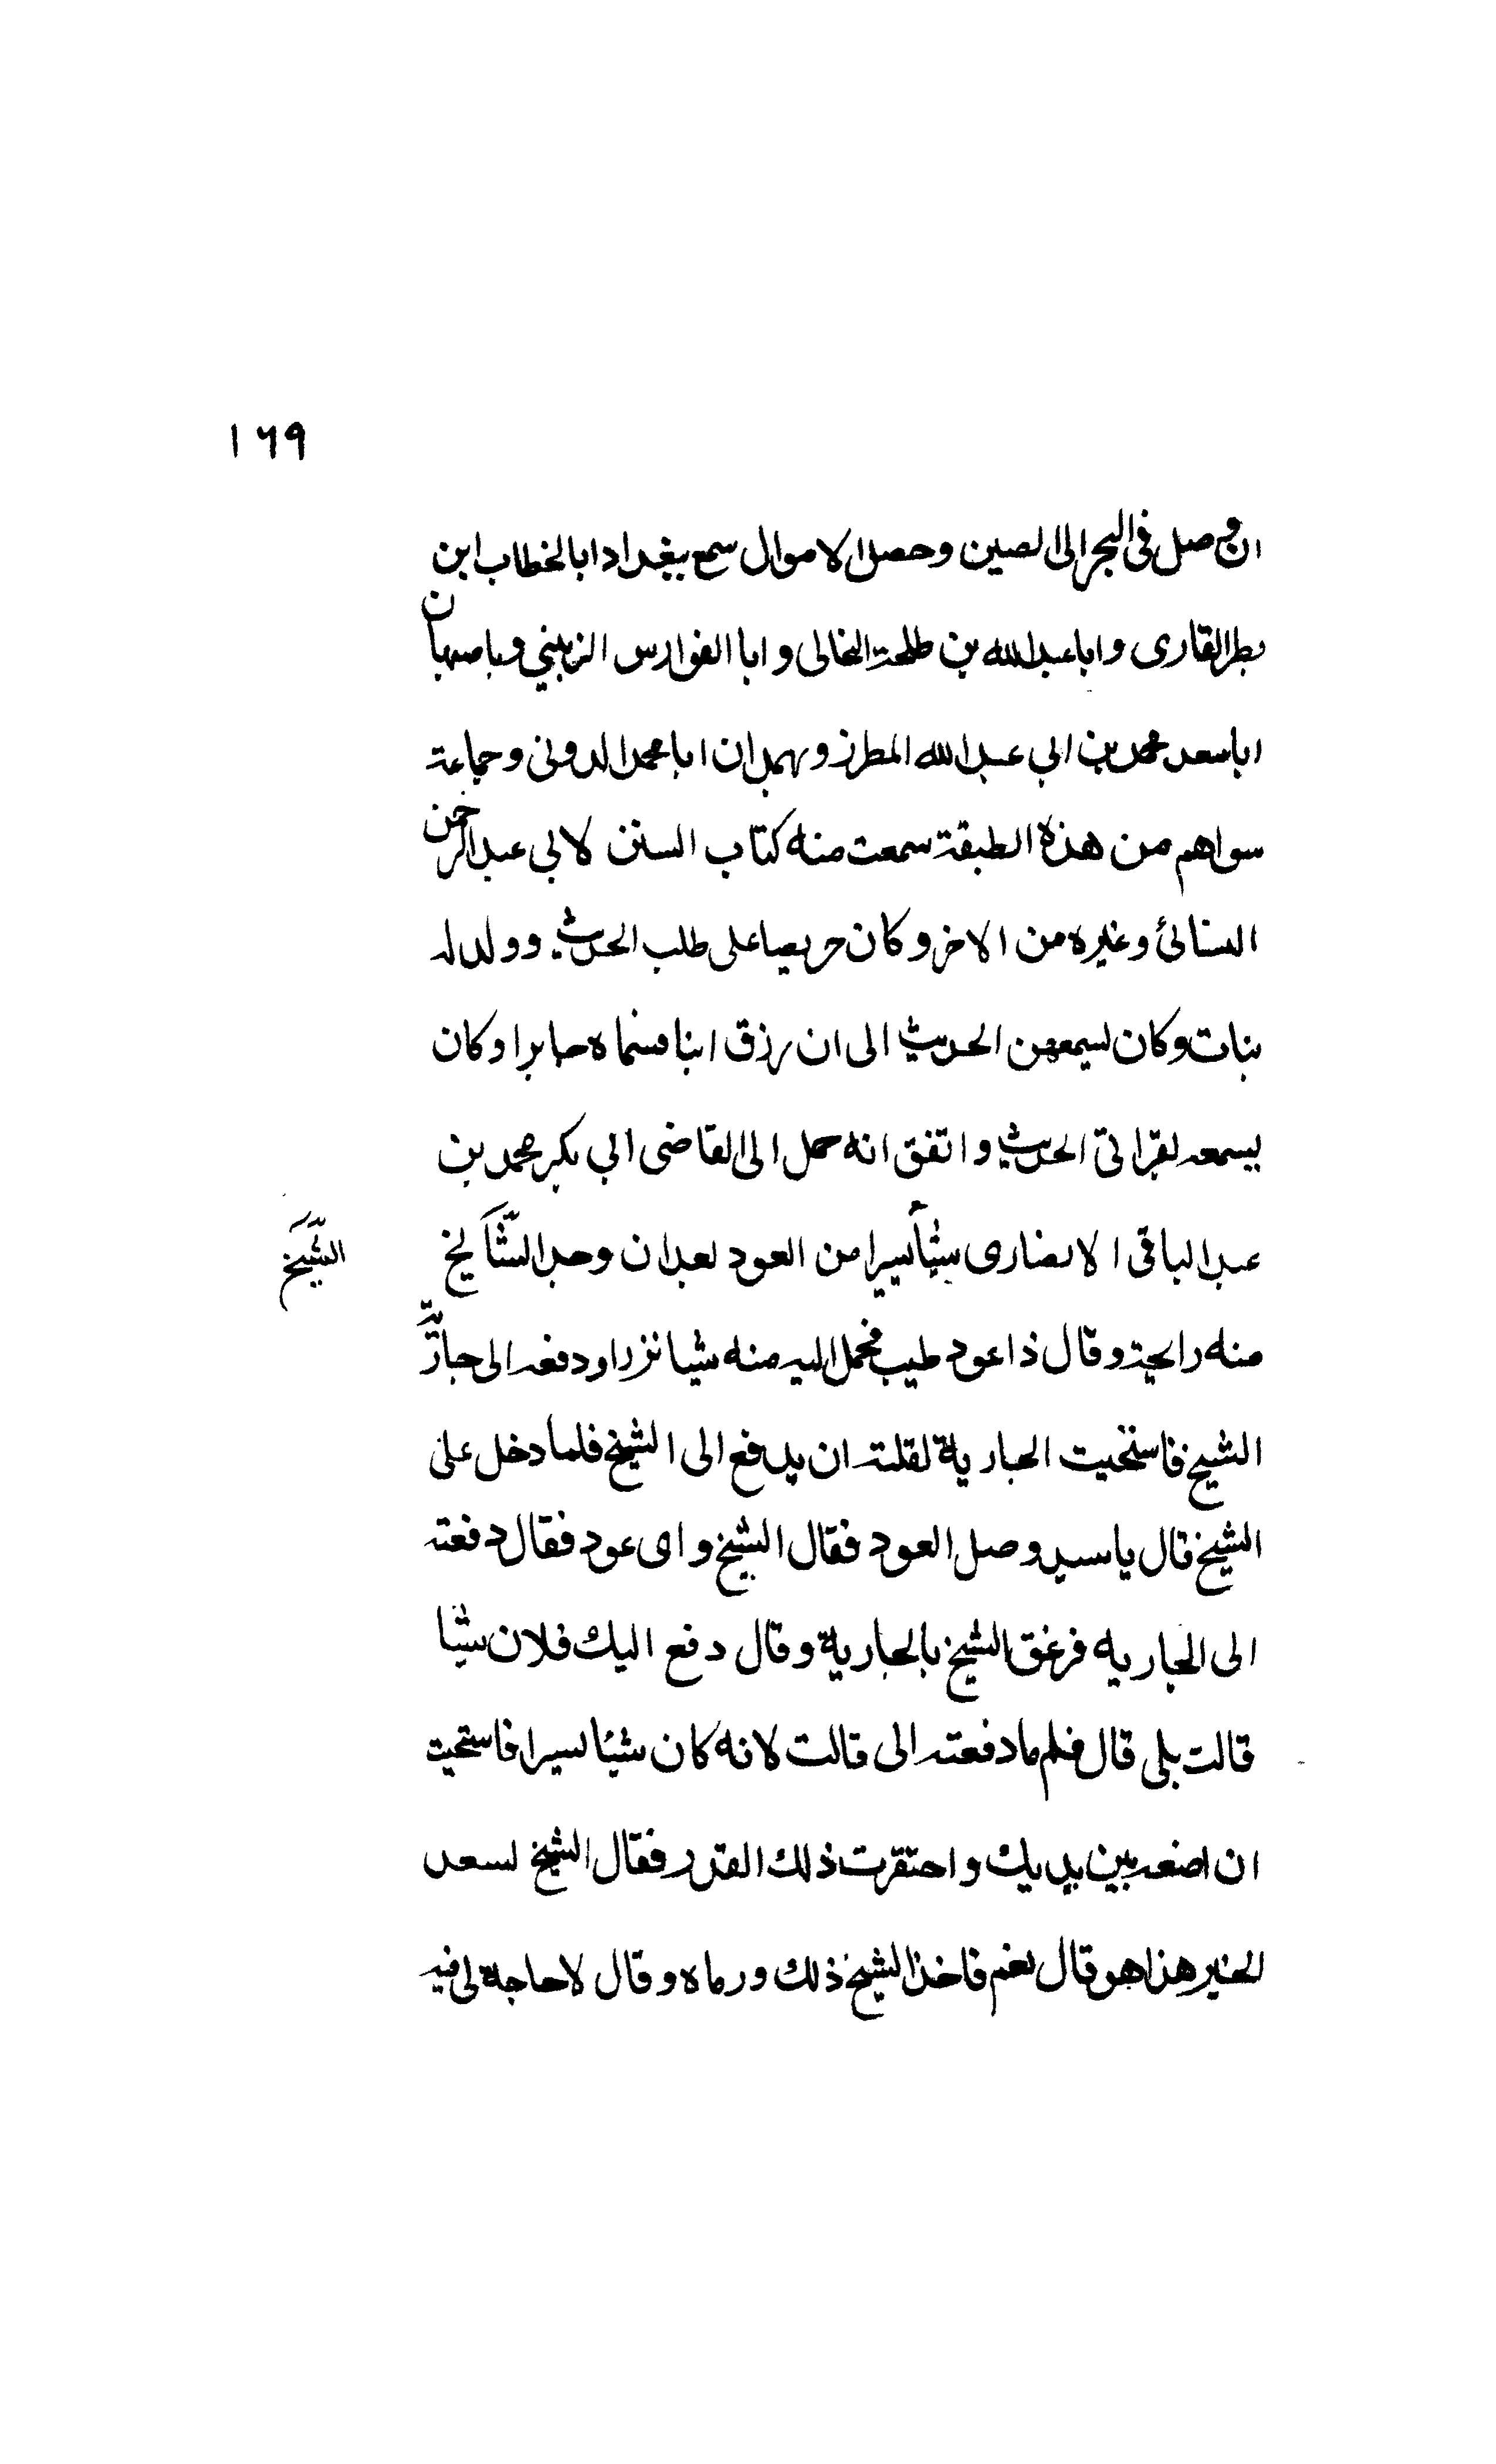 ١٦٩
ان وصل فى البحر الى الصين وحصل الاموال سمع ببغداد ابا الخطاب ابن
بطر القارى وابا عبد الله بن طلحة النعالى وابا الفوارس الزينبي وباصبهان
ابا سعد محمد بن ابي عبد الله المطرز وبهمدان ابا محمد الدونى وجماعة
سواهم من هذه الطبقة سمعت منه كتاب السنن لابى عبد الرحمن
النسائى وغيره من الاخر وكان حريصا على طلب الحديث وولد له
بنات وكان يسمعهن الحديث الى ان رزق ابنا فسماه جابرا وكان
يسمعه بقراتى الحديث واتفق انه حمل الى القاضى ابي بكر محمد بن
عبد الباقى الانصارى شيئا يسيرا من العود بعد ان وجد الشايخ
الشيخ
منه رايحة وقال ذا عود طيب فحمل اليه منه شيا نزرا ودفعه الى جارية
الشيخ فاستحيت الجارية لقلته ان يدفع الى الشيخ فلما دخل على
الشيخ قال يا سيد وصل العود فقال الشيخ واى عود فقال دفعته
الى الجاريه فزعق الشيخ بالجارية وقال دفع اليك فلان شيا
قالت بلى قال فلم ما دفعته الى قالت لانه كان شيئا يسيرا فاستحيت
ان اضعه بين يديك واحتقرت ذلك القدر فقال الشيخ لسعد
الخير هذا هو قال نعم فاخذ الشيخ ذلك ورماه وقال لا حاجة لى فيه